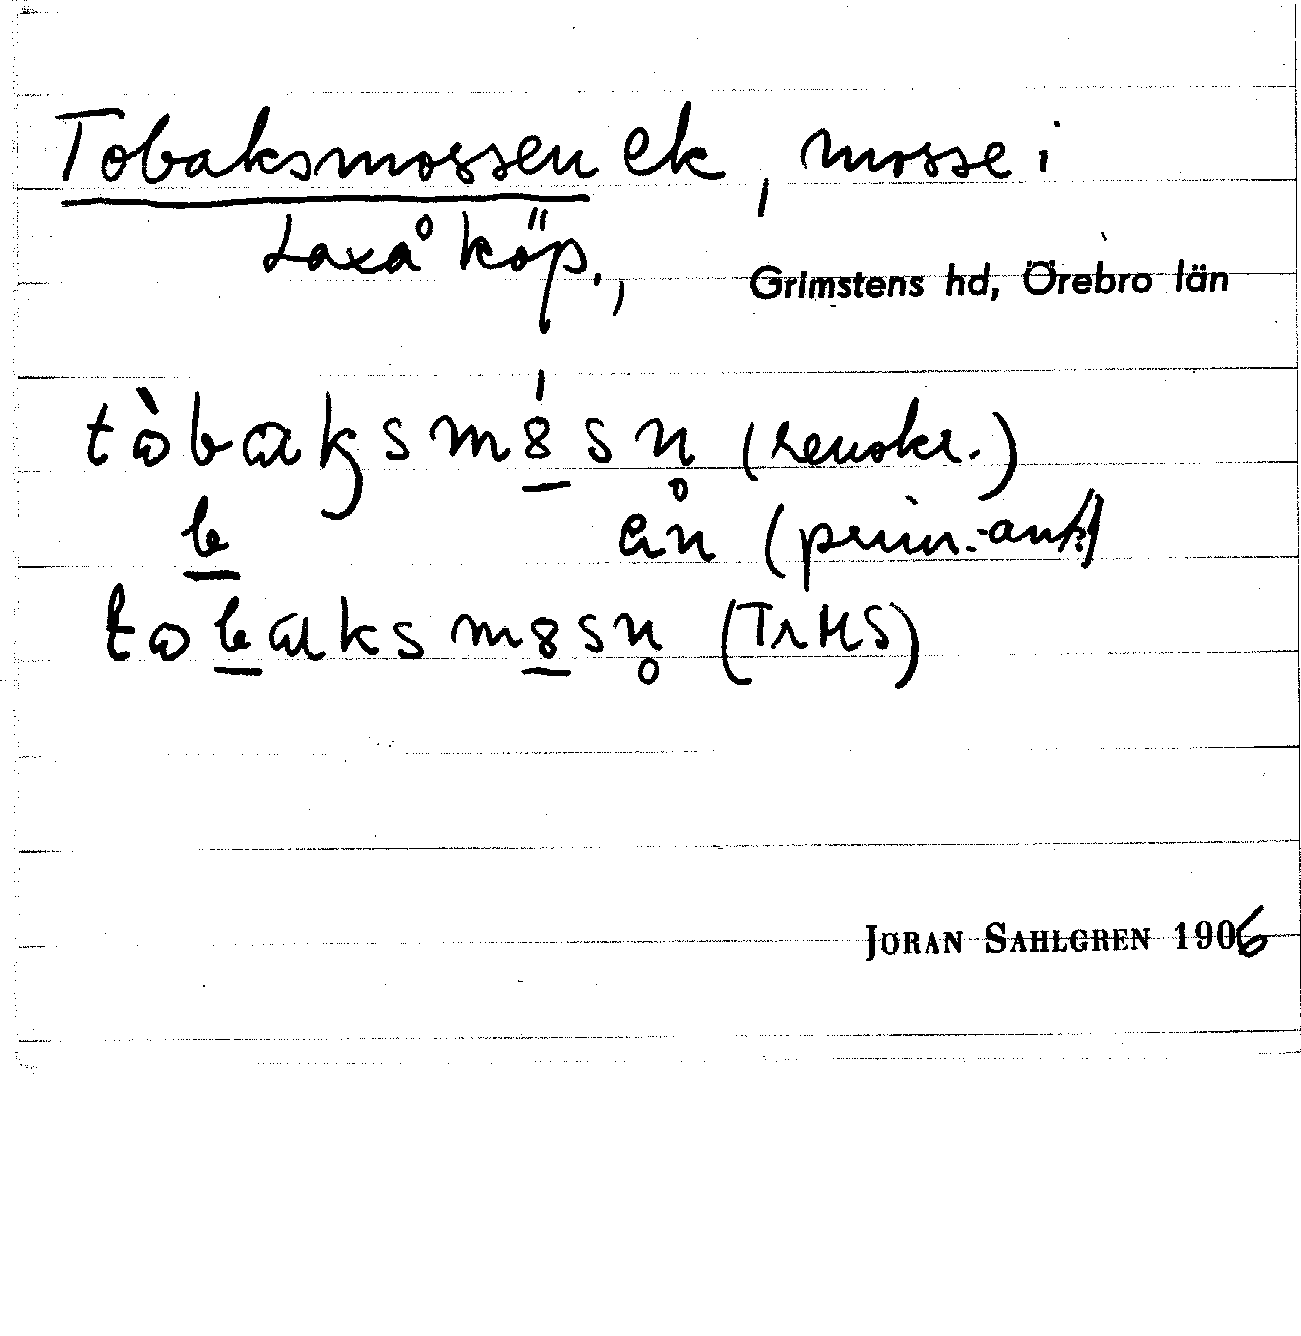 Tobaksmossen ek, mosse i
Laxå köp.,
Grimstens hd, Örebro län
tòbaksm8́sn̥ (renskr.)
b ən (prim.-ant.)
tobaksm8sn̥ (TrHS)
JÖRAN SAHLGREN 1906